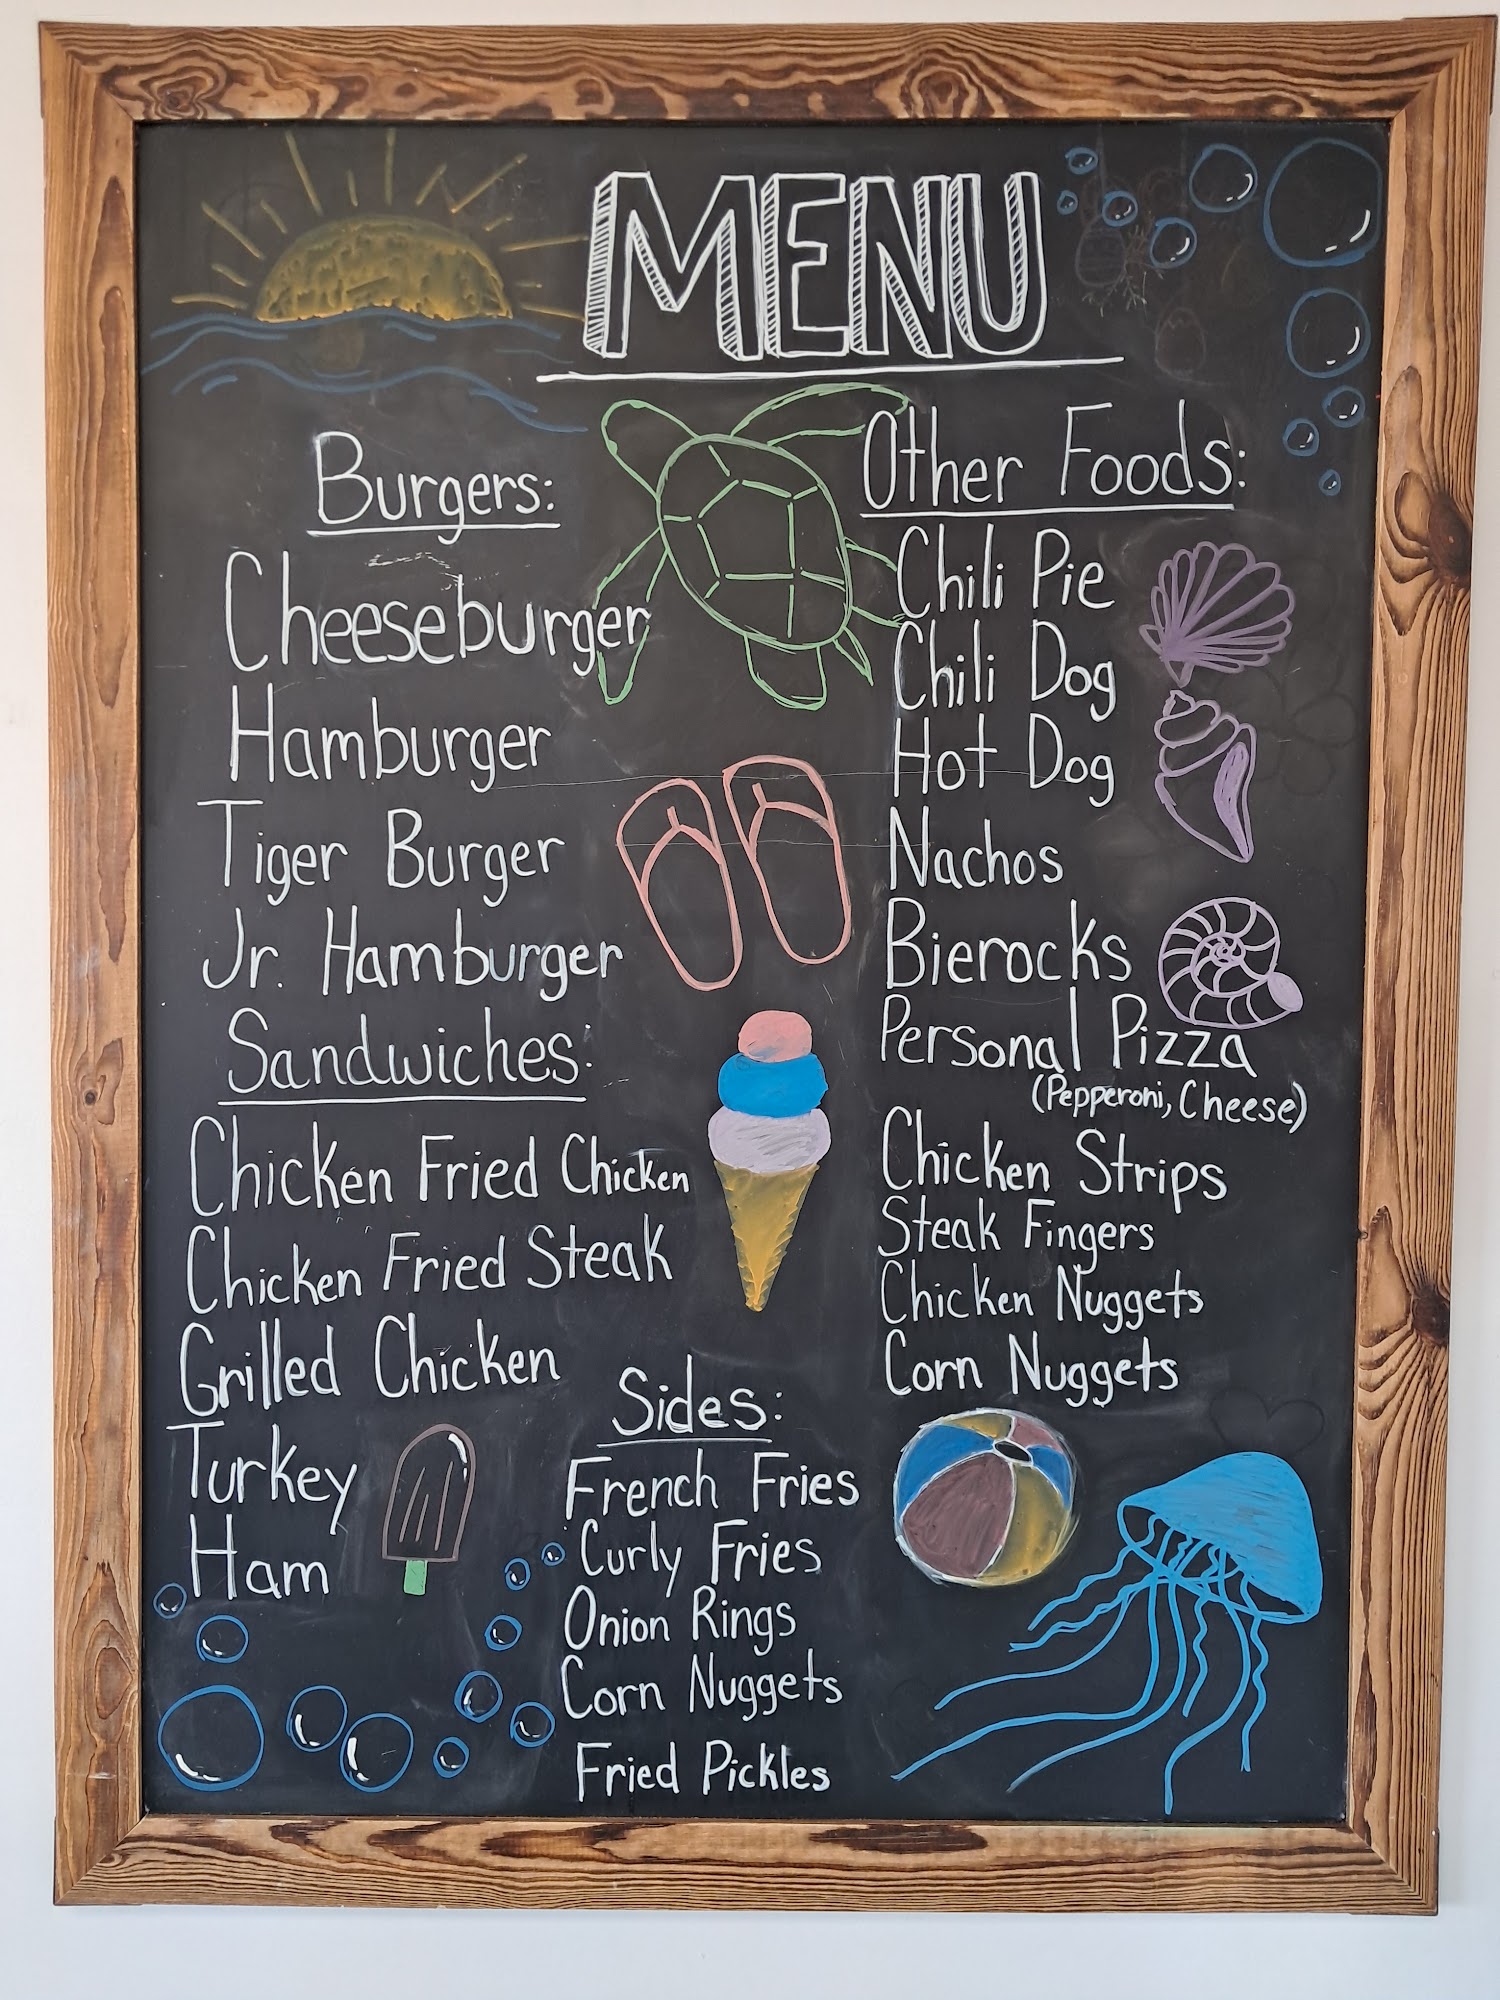 MENU
Burgers:
Cheeseburger
Hamburger
Tiger Burger
Jr. Hamburger
Sandwiches:
Chicken Fried Chicken
Chicken Fried Steak
Grilled Chicken
Turkey
Ham
Other Foods:
Chili Pie
Chili Dog
Hot Dog
Nachos
Bierocks
Personal Pizza
(Pepperoni, Cheese)
Chicken Strips
Steak Fingers
Chicken Nuggets
Corn Nuggets
Sides:
French Fries
Curly Fries
Onion Rings
Corn Nuggets
Fried Pickles